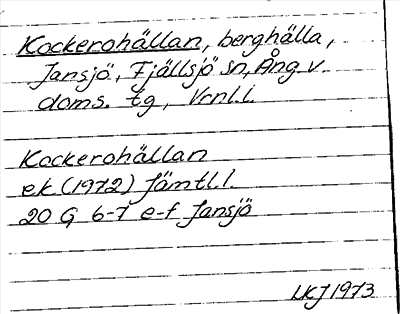 Kockerohällan, berghälla,
Jansjö, Fjällsjö sn, Ång. v.
doms. tg, Vrnl. l.
Kockerohällan
ek (1972) Jämtl. l.
20 G 6-7 e-f Jansjö
LKJ 1973